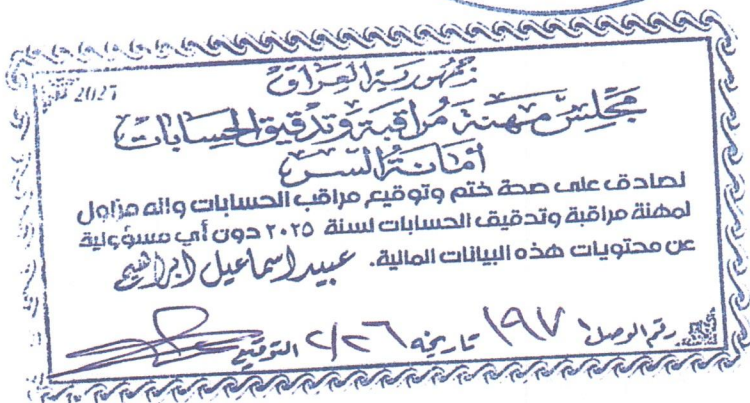 جمهورية العراق
2027
مجلس مهنة مراقبة وتدقيق الحسابات
أمانة السر
نصادق على صحة ختم وتوقيع مراقب الحسابات وانه مزاول
لمهنة مراقبة وتدقيق الحسابات لسنة ٢٠٢٥ دون أي مسؤولية
عن محتويات هذه البيانات المالية. عبيد اسماعيل ابراهيم
رقم الوصل ١٩٧ تاريخه ٢/٢٦ التوقيع